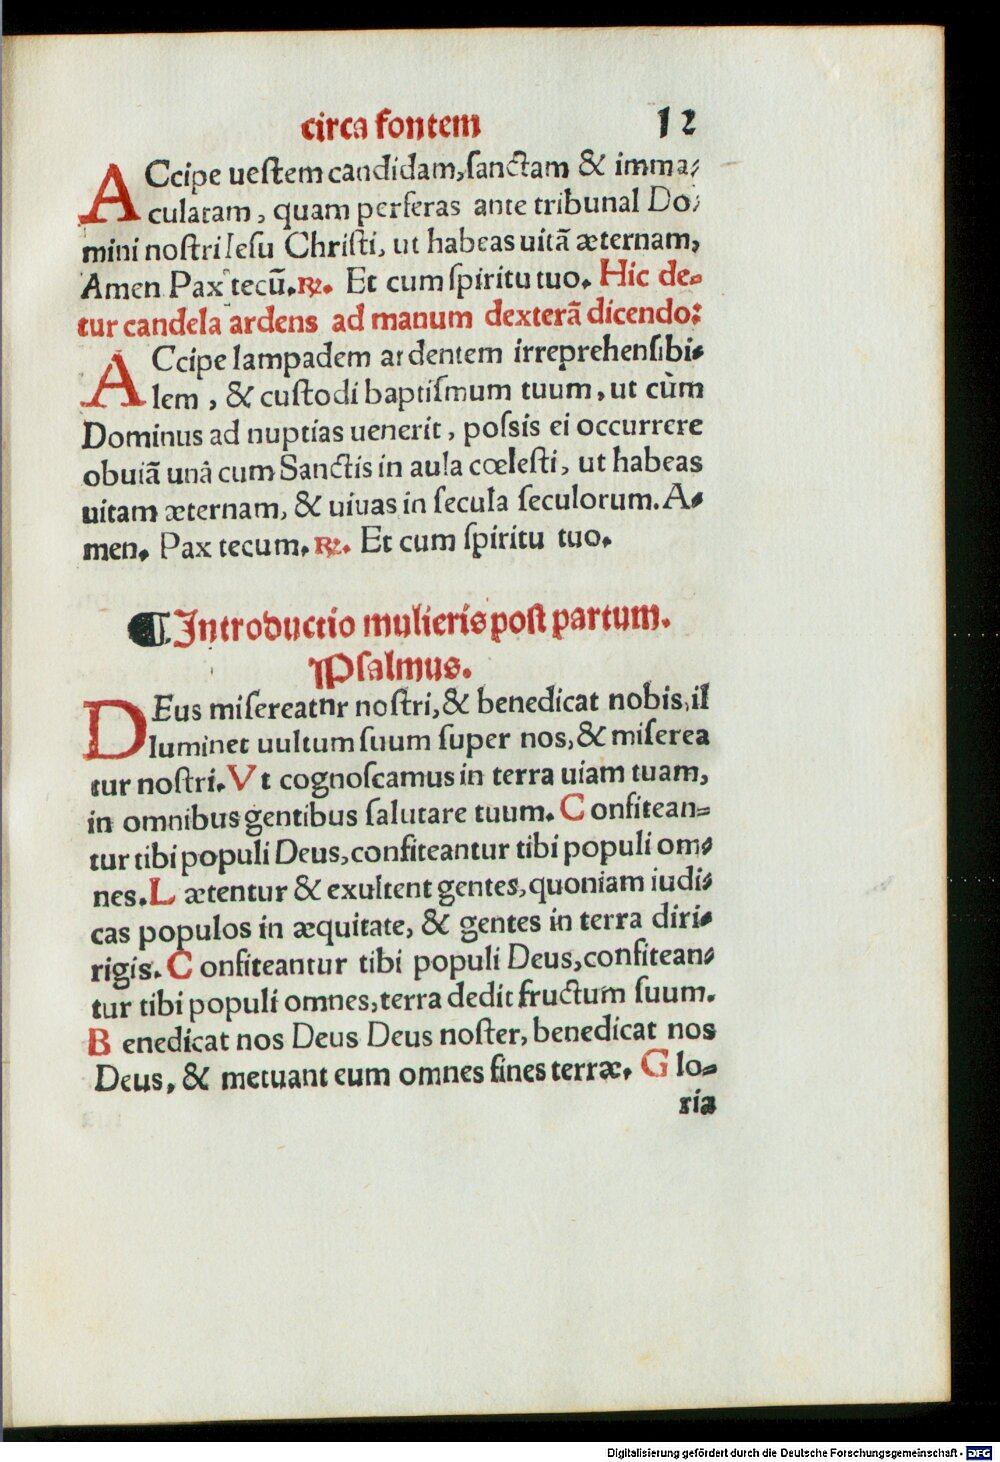 circa fontem 12
ACcipe uestem candidam, sanctam & imma⸗
culatam, quam perferas ante tribunal Do⸗
mini nostri Iesu Christi, ut habeas uitã æternam,
Amen Pax tecũ. ℟. Et cum spiritu tuo. Hic de⸗
tur candela ardens ad manum dexterã dicendo:
ACcipe lampadem ardentem irreprehensibi⸗
lem, & custodi baptismum tuum, ut cùm
Dominus ad nuptias uenerit, possis ei occurrere
obuiã unà cum Sanctis in aula cœlesti, ut habeas
uitam æternam, & uiuas in secula seculorum. A⸗
men. Pax tecum. ℟. Et cum spiritu tuo.
¶ Introductio mulieris post partum.
Psalmus.
DEus misereatnr nostri, & benedicat nobis, il
luminet uultum suum super nos, & miserea
tur nostri. Vt cognoscamus in terra uiam tuam,
in omnibus gentibus salutare tuum. Confitean⸗
tur tibi populi Deus, confiteantur tibi populi om⸗
nes. Lætentur & exultent gentes, quoniam iudi⸗
cas populos in æquitate, & gentes in terra diri⸗
rigis. Confiteantur tibi populi Deus, confitean⸗
tur tibi populi omnes, terra dedit fructum suum.
Benedicat nos Deus Deus noster, benedicat nos
Deus, & metuant eum omnes fines terræ. Glo⸗
ria
Digitalisierung gefördert durch die Deutsche Forschungsgemeinschaft - DFG